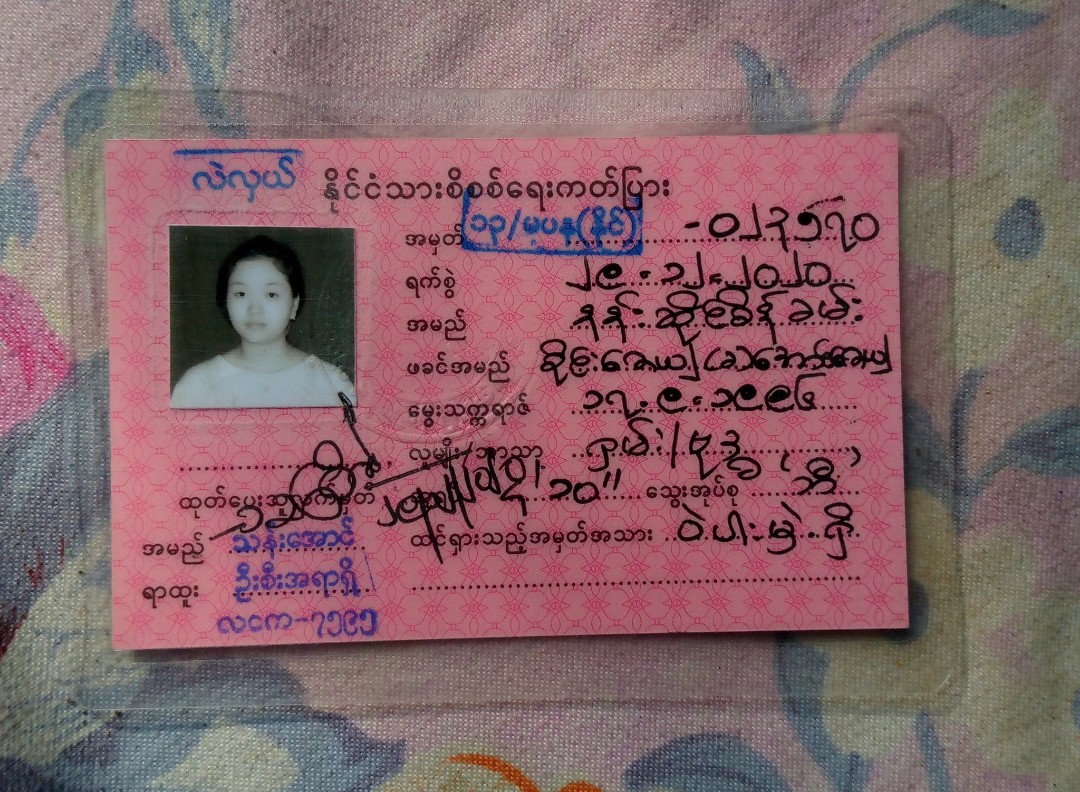 လဲလှယ်
နိုင်ငံသားစိစစ်ရေးကတ်ပြား
အမှတ် ၁၃/မပန(နိုင်) -၀၂၃၅၇၀
ရက်စွဲ ၂၉.၁၂.၂၀၂၀
အမည် နန်းဆိုင်ခိန်ခမ်း
ဖခင်အမည် စိုင်းအေးယျ (ခ)
မွေးသက္ကရာဇ် ၁၇.၉.၁၉၉၆
လူမျိုး/ဘာသာ ရှမ်း/ဗုဒ္ဓ
ထုတ်ပေးသူ၏လက်မှတ်
၁၀" သွေးအုပ်စု 'ဘီ'
ထင်ရှားသည့်အမှတ်အသား ဝဲပါးမှဲ့ရှိ
အမည် သန်းအောင်
ရာထူး ဦးစီးအရာရှိ
လငက-၇၅၉၅